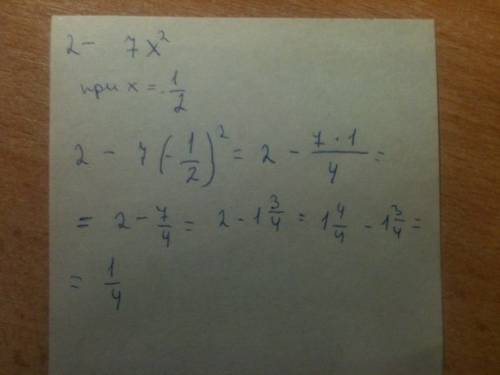 2 - 7x²
при x = -1/2
2 - 7(-1/2)² = 2 - 7·1/4 =
= 2 - 7/4 = 2 - 1 3/4 = 1 4/4 - 1 3/4 =
= 1/4